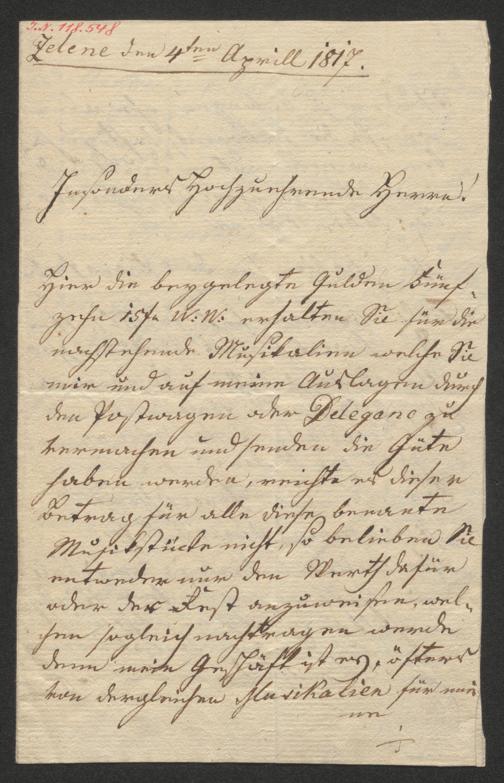 I.N. 118.548
Zelene den 4ten Aprill 1817.
Insonders Hochzuehrende Herrn!
Hier die beygelegte Gulden Fünf-
zehn 15 fr W: W: erhalten Sie für die
nachstehende Musikalien welche Sie
mir und auf meine Auslagen durch
den Postwagen oder Deleganc zu
vermachen und senden die Güte
haben werden, reichte es dieser
Betrag für alle diese benante
Musikstücke nicht, so belieben Sie
entweder nur den Werth dafür
oder der Rest anzuweisen, wel-
chen sogleich nachtragen werde
denn mein Geschäft ist es, öfters
von dergleichen Musikalien für mei
ne